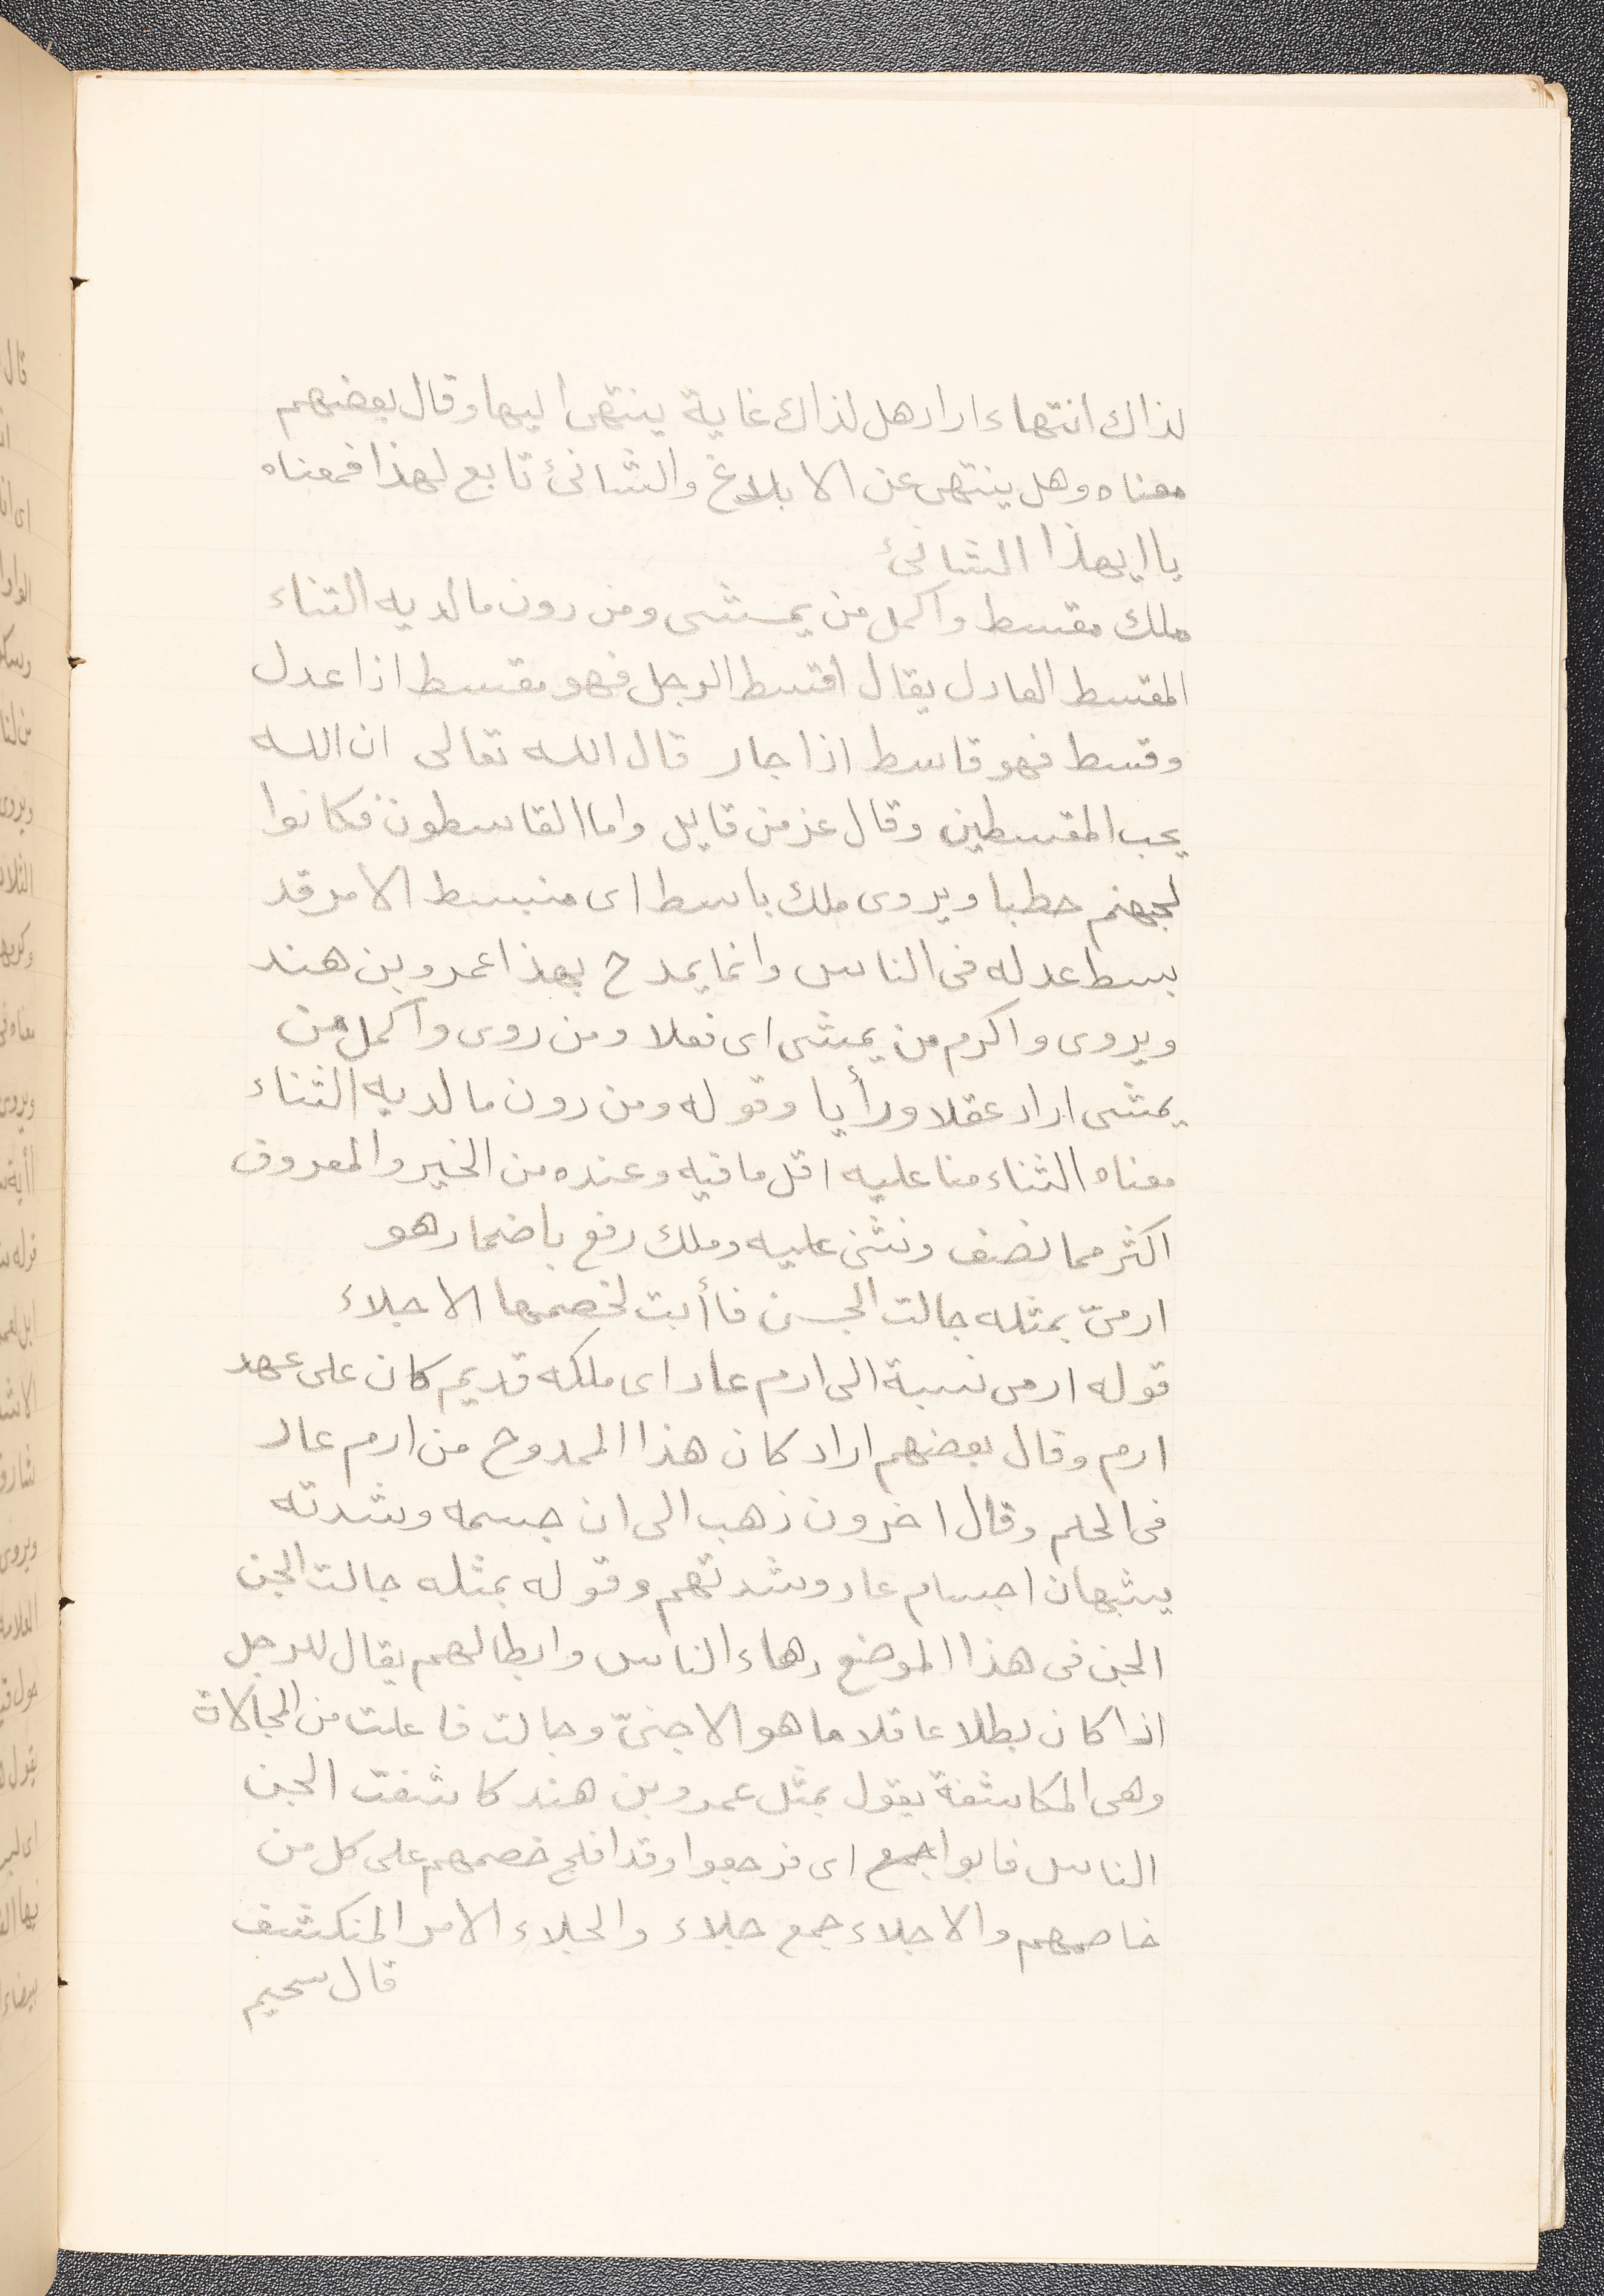 لذاك انتهاء اراد هل لذاك غاية ينتهى اليها وقال بعضهم
معناه وهل ينتهى عن الابلاغ والشانئ تابع لهذا فمعناه
يا ايهذا الشانئ
ملك مقسط واكمل من يمشى ومن دون مالديه الثناء
المقسط العادل يقال اقسط الرجل فهو مقسط اذا عدل
وقسط فهو قاسط اذا جار قال الله تعالى ان الله
يحب المقسطين وقال عز من قايل واما القاسطون فكانوا
لجهنم حطبا ويروى ملك باسط اى منبسط الامر قد
بسط عدله فى الناس وانما يمدح بهذا عمرو بن هند
ويروى واكرم من يمشى اى فعلا ومن روى واكمل من
يمشى اراد عقلا ورأيا وقوله ومن دون مالديه الثناء
معناه الثناء منا عليه اقل ما فيه وعنده من الخير والمعروف
اكثر مما نصف ونثنى عليه وملك رفع باضمار هو
ارمىّ بمثله جالت الجن فأبت لخصمها الاجلاء
قوله ارمى نسبة الى ارم عاد اى ملكه قديم كان على عهد
ارم وقال بعضهم اراد كان هذا الممدوح من ارم عاد
فى الحلم وقال اخرون ذهب الى ان جسمه وشدته
يشبهان اجسام عاد وشدتهم وقوله بمثله جالت الجن
الجن فى هذا الموضع دهاء الناس وابطالهم يقال للرجل
اذا كان بطلا عاقلا ما هو الا جنىّ وجالت فاعلت من المجالاة
وهى المكاشفة يقول بمثل عمرو بن هند كاشفت الجن
الناس فابوا جمع اى فرجعوا وقد افلج خصمهم على كل من
خاصمهم والاجلاء جمع جلاء والجلاء الامر المنكشف
قال سحيم